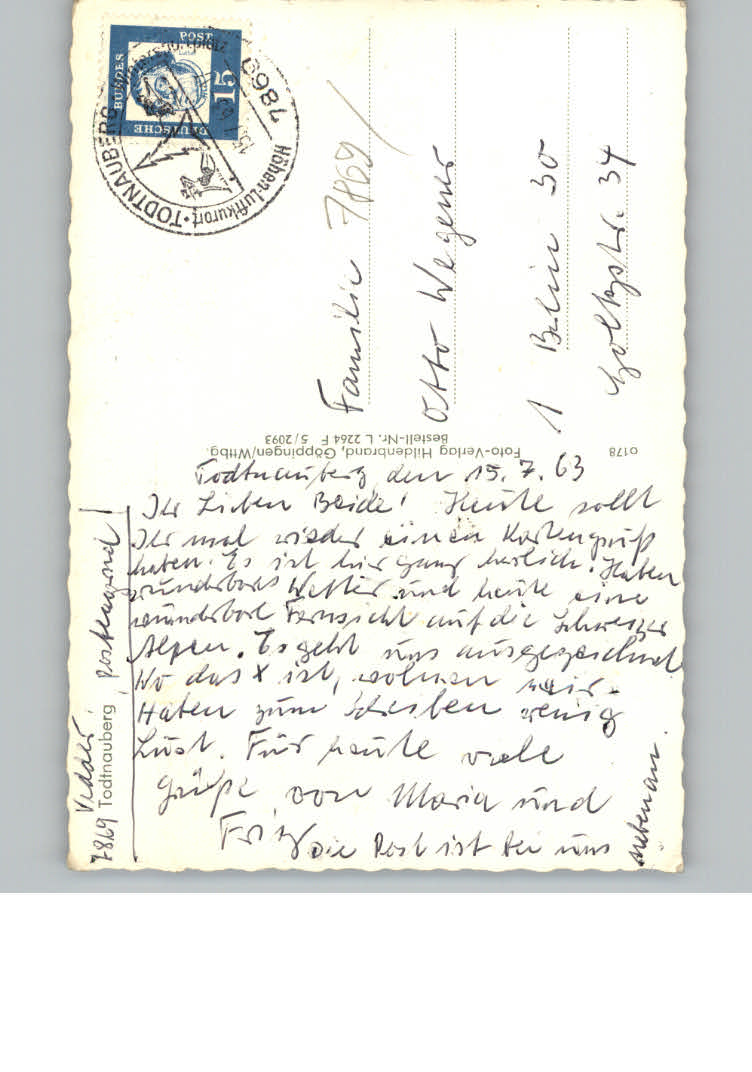 Todtnauberg den 15. 7. 63
Ihr Lieben Beide! Heute sollt
Ihr mal wieder einen Kartengruß
haben. Es ist hier ganz herlich. Haben
wunderbares Wetter und heute eine
wunderbare Fernsicht auf die Schweizer
Alpen. Es geht uns ausgezeichnet
Wo das X ist, wohnen wir.
Haben zum Schreiben wenig
Lust. Für heute viele
Grüße von Maria und
Fritz
Die Post ist bei uns
nebenan.
7869 Todtnauberg
Postlagernd!
Familie 7869
Otto Wegener
1 Berlin 30
Goltzstr. 34
0178
Foto-Verlag Hildenbrand, Göppingen/Wttbg.
Bestell-Nr. L 2264 F 5/2093
DEUTSCHE
BUNDES
POST
15
7869
Höhen-Luftkurort · TODTNAUBERG